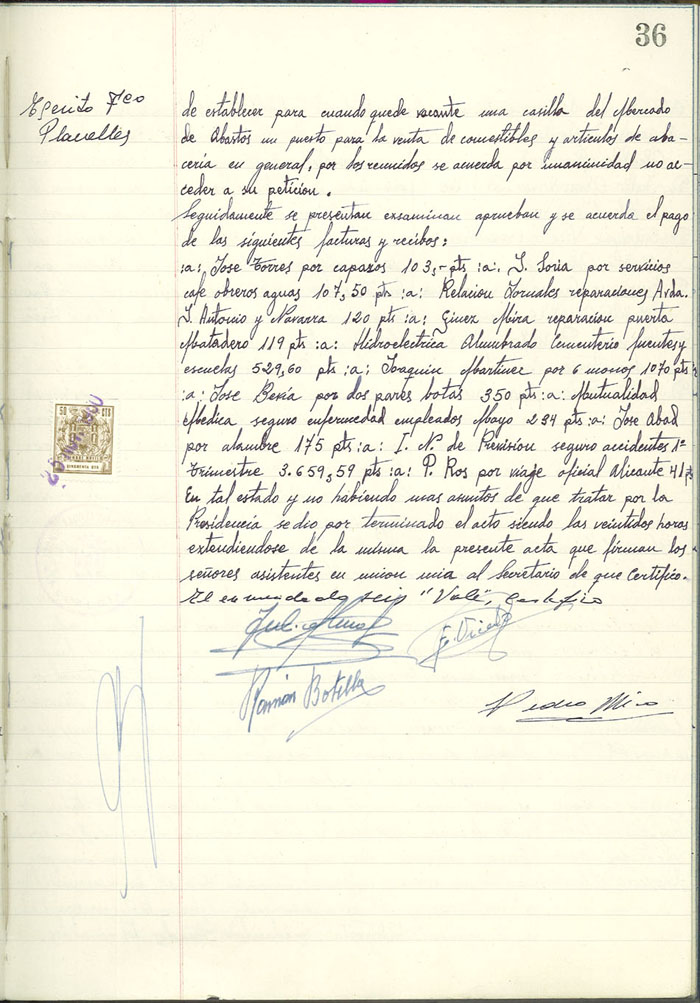 36
Escrito Fco
Planelles
de establecer para cuando quede vacante una casilla del Mercado
de Abastos un puesto para la venta de comestibles y articulos de aba-
ceria en general, por los reunidos se acuerda por unanimidad no ac-
ceder a su peticion.
Seguidamente se presentan exsaminan aprueban y se acuerda el pago
de las siguientes facturas y recibos:
:a: Jose Torres por capazos 103,- pts :a: J. Soria por servicios
cafe obreros aguas 107,50 pts :a: Relacion Jornales reparaciones Avda.
J. Antonio y Navarra 120 pts :a: Ginez Mira reparacion puerta
Matadero 119 pts :a: Hidroelectrica Alumbrado Cementerio fuentes y
escuelas 529,60 pts :a: Joaquin Martinez por 6 monos 1070 pts
:a: Jose Beria por dos pares botas 350 pts :a: Mutualidad
Medica seguro enfermedad empleados Mayo 234 pts :a: Jose Abad
por alambre 175 pts :a: I. N. de Prevision seguro accidentes 1º
Trimestre 3.659,59 pts :a: P. Ros por viaje oficial Alicante 41 pts
En tal estado y no habiendo mas asuntos de que tratar por la
Presidencia se dio por terminado el acto siendo las veintidos horas
extendiendose de la misma la presente acta que firman los
señores asistentes en union mia el Secretario de que Certifico.
El enmendado seis "Vale", Certifico
Ramón Botella
Pedro Miro
50 CTS